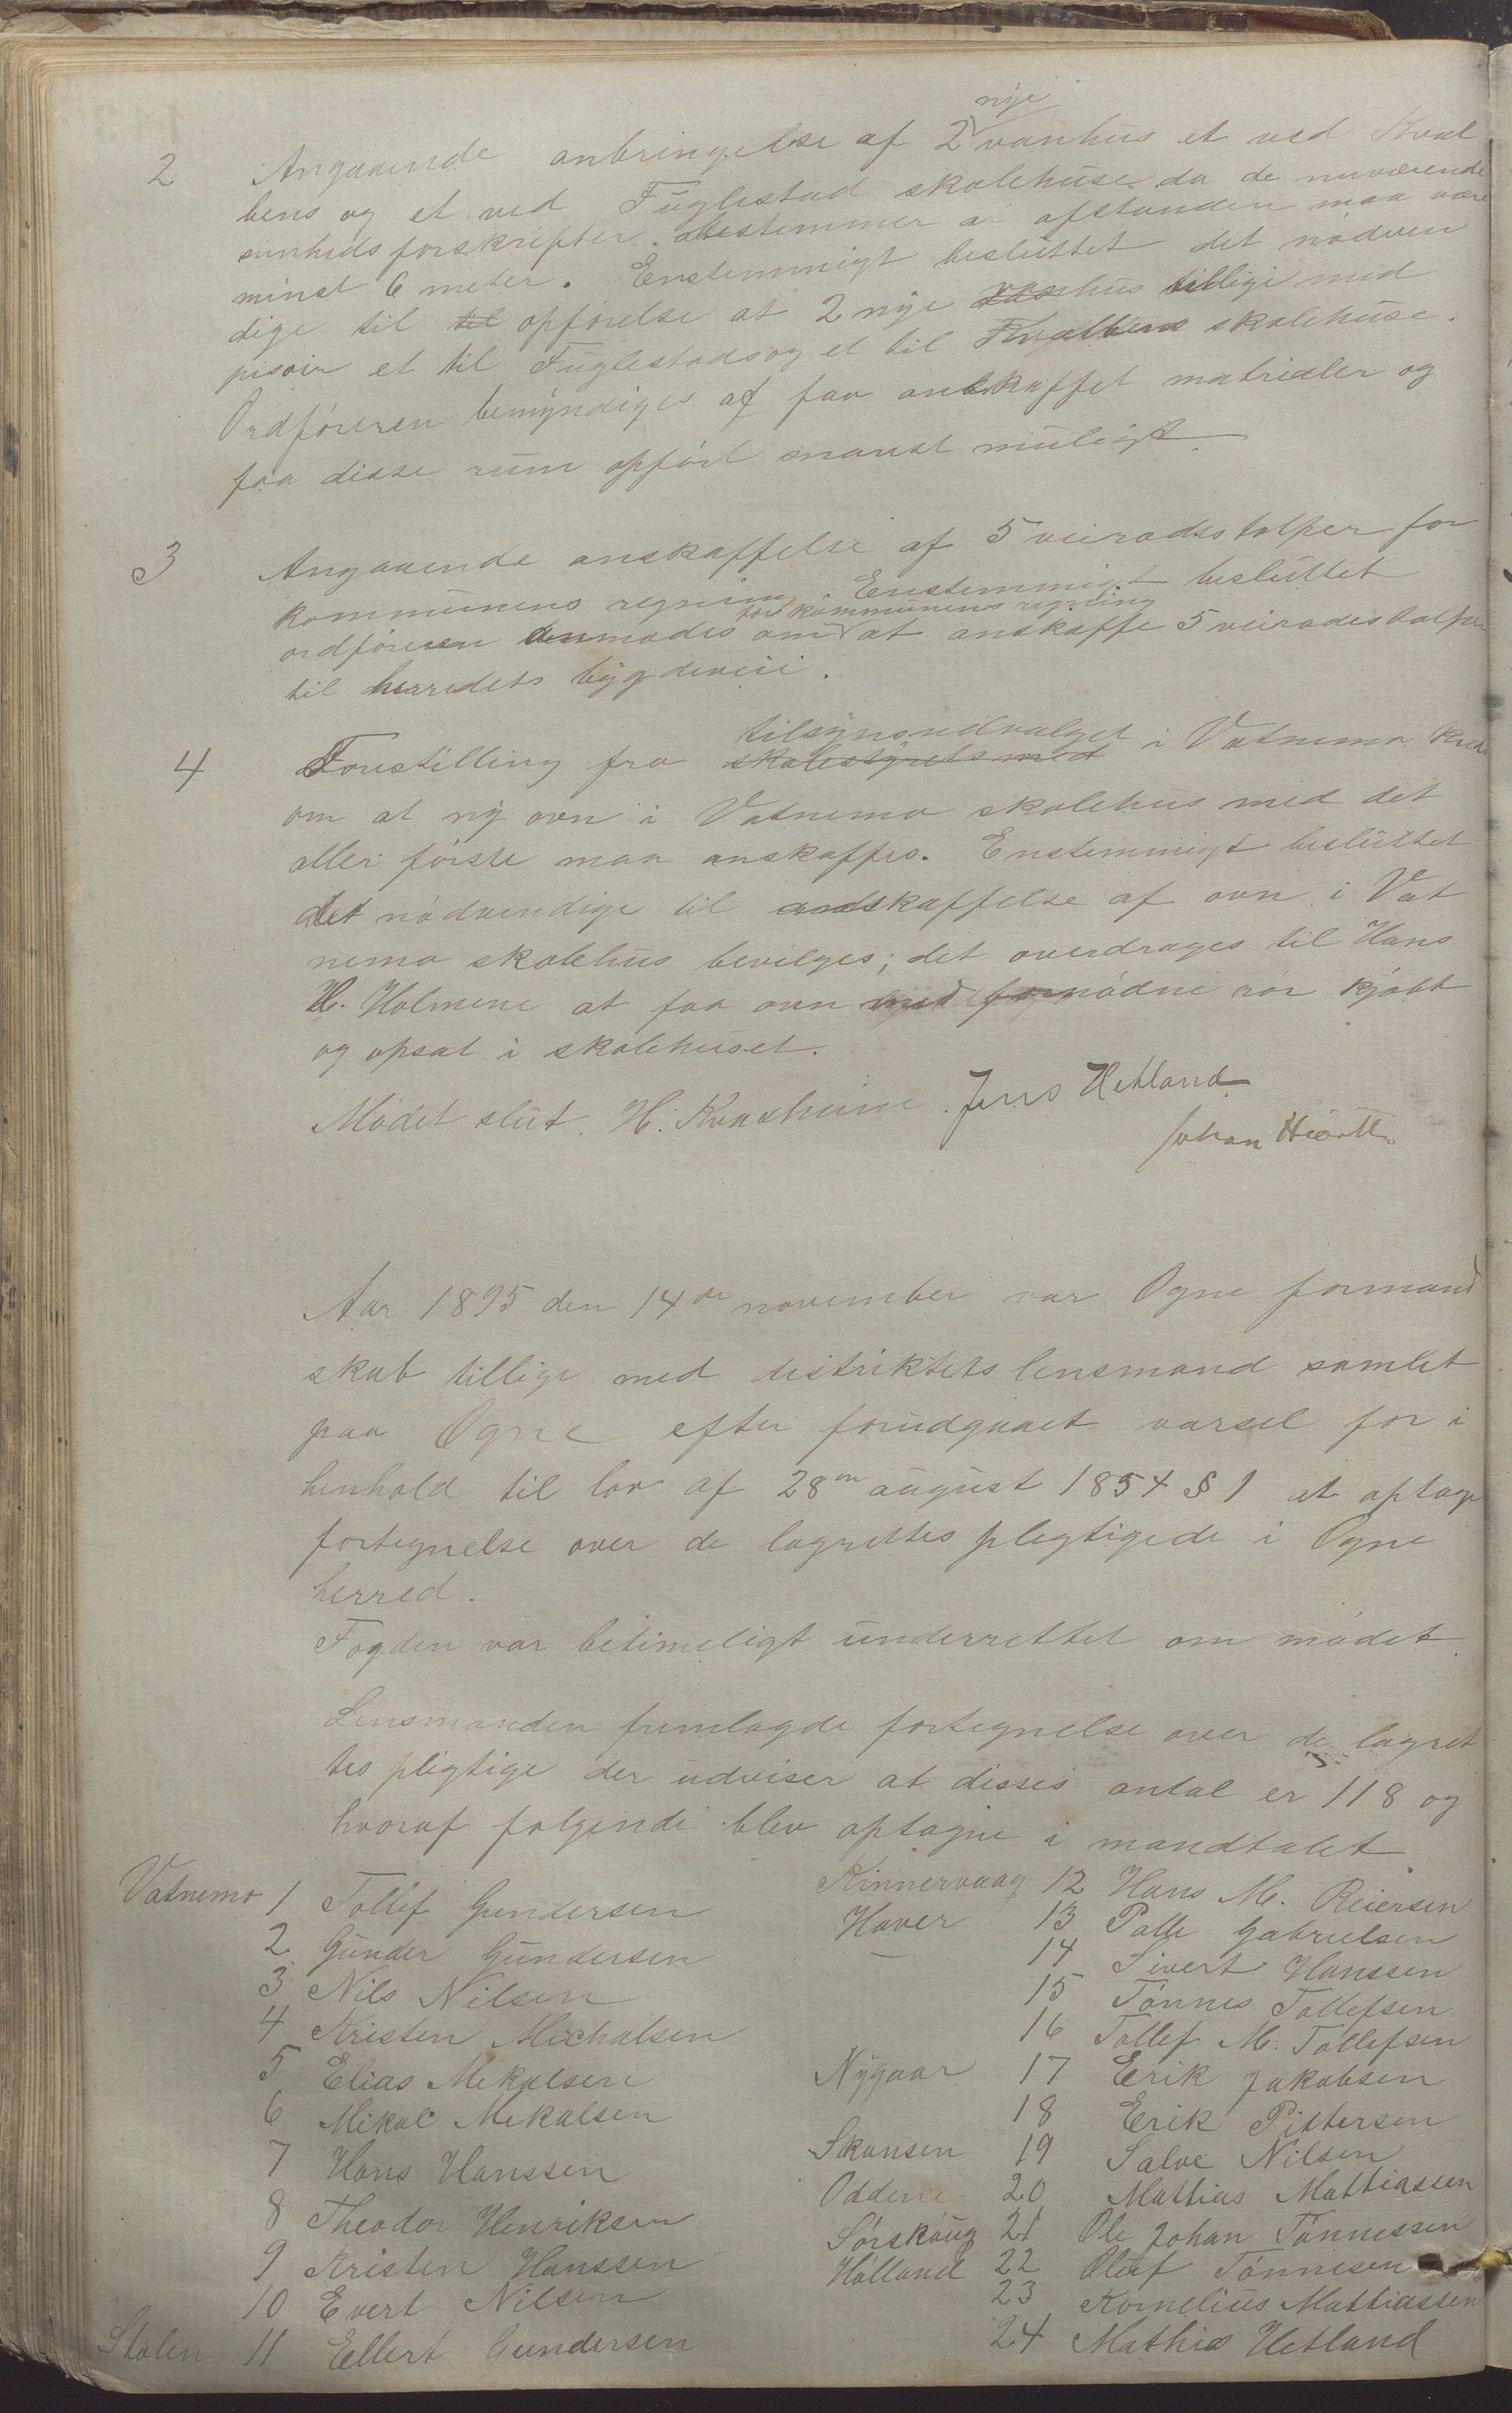 2 Angaaende anbringelse af 2 nye vanhus et ved Kval
bens og et ved Fuglestad skolehuse da de nuværende
sunheds forskrifter bestemmer at afstanden maa være
minst 6 meter. Enstemmigt besluttet det nødven
dige til til opførelse at 2 nye vanhus tillige med
pisoir et til Fuglestads og et til Kvalbens skolehuse.
Ordføreren bemyndiges af faa anskaffet matrialer og
faa disse rum opført snarest muligt.
3 Angaaende anskaffelse af 5 veirodestolper for
kommunens regning. Enstemmigt besluttet
ordføreren anmodes om for kommunens regning at anskaffe 5 veirodestolper
til herredets bygdeveie.
4 Forestilling fra skolestyrets med tilsynsudvalget i Vatnemo
om at ny ovn i Vatnemo skolehus med det
aller første maa anskaffes. Enstemmigt besluttet
det nødvendige til andskaffelse af ovn i Vat
nemo skolehus bevilges; det overdrages til Hans
H. Holmene at faa ovn med fornødne rør kjøbt
og opsat i skolehuset.
Mødet slut. H. Kvasheim. Jens Hetland
Johan
Aar 1895 den 14de november var Ogne formand
skab tillige med distriktets lensmand samlet
paa Ogne efter forudgaaet varsel for i
henhold til lov af 28de august 1854 § 1 at optage
fortegnelse over de lagrettes plegtigede i Ogne
herred.
Fogden var betimeligt underrettet om mødet.
Lensmanden fremlagde fortegnelse over de lagret
tes pligtige der udviser at disses antal er 118 og
hvoraf følgende blev optagne i mandtalet
Vatnemo 1 Tollef Gundersen
2 Gunder Gundersen
3 Nils Nilsen
4 Kristen Michalsen
5 Elias Mekalsen
6 Mikal Mekalsen
7 Hans Hanssen
8 Theodor Henriksen
9 Kristen Hanssen
10 Evert Nilsen
Stølen 11 Ellert Gundersen
Kinnervaag 12 Hans M. Reiersen
Haver 13 Palle Gabrielsen
— 14 Sivert Hanssen
15 Tønnes Tollefsen
16 Tollef M. Tollefsen
Nygaar 17 Erik Jakobsen
18 Erik Pittersen
Skansen 19 Salve Nilsen
Oddene 20 Mattias Mattiassen
Sørskoug 21 Ole Johan Tønnessen
Hølland 22 Oluf Tønnesen
23 Kornelius Mattiassen
24 Mathias Hetland